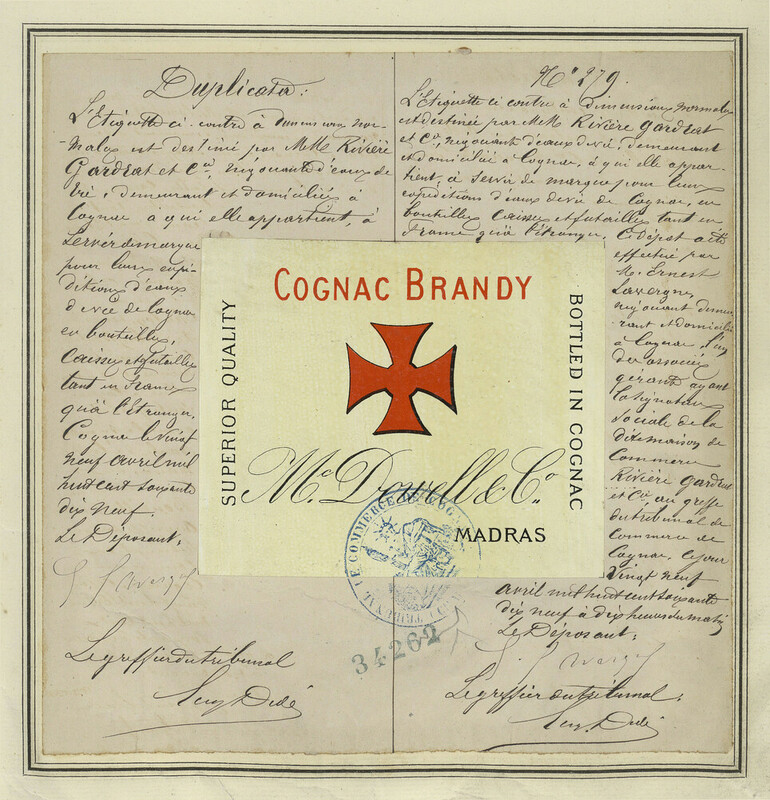 Duplicata:
L'Etiquette ci-contre à dimensions nor-
males est destiné par MM Rivière
Gardrat et Cie, négociants d'eaux de
vie, demeurant et domiciliés à
Cognac a qui elle appartient, à
servir de marque
pour leurs expé-
ditions d'eaux
de vie de Cognac
en bouteilles,
Caisses et futailles
tant en France
qu'à l'étranger,
Cognac le vingt
neuf avril mil
huit cent soixante
dix neuf.
Le Déposant,
Le greffier du tribunal
Dédé
No 279.
L'Etiquette ci contre à dimensions normales
est destinée par MM Rivière Gardrat
et Co, négociants d'eaux de vie, demeurant
et domiciliés à Cognac, à qui elle appar-
tient, à servir de marque pour leurs
expéditions d'eaux de vie de Cognac, en
bouteilles Caisses et futailles tant en
France qu'à l'étranger, Ce dépôt a été
effectué par
M. Ernest
Lavergne,
négociant demeu-
rant et domicilié
à Cognac, l'un
des associés
gérant ayant
la signature
sociale de la
dite maison de
Commerce
Rivière Gardrat
et Co, au greffe
du tribunal de
Commerce de
Cognac, ce jour
vingt neuf
avril mil huit cent soixante
dix neuf à dix heures du matin
Le Déposant:
Le greffier du tribunal:
Dédé
COGNAC BRANDY
SUPERIOR QUALITY
BOTTLED IN COGNAC
Mc. Dowell & Co.
MADRAS
TRIBUNAL DE COMMERCE DE COGNAC
34262